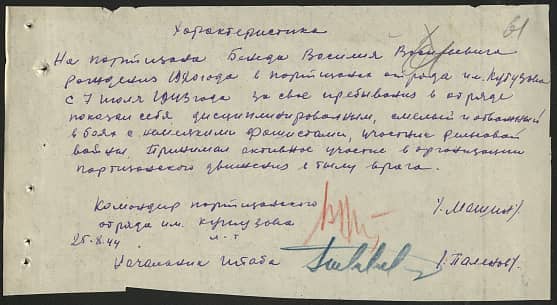 61
Характеристика
На партизана Василия
рождения 1920 года в партизанск отряда им. Кутузова
с 7 июля 1943 года за свое пребывания в отряде
показал себя дисциплинированным, смелый и отважный
в боях с немецкими фашистами, участник рельсовой
войны. Принимал активное участие в организации
партизанского движения в тылу врага.
Командир партизанского
отряда им. Кутузова
25.8.44
Начальник штаба